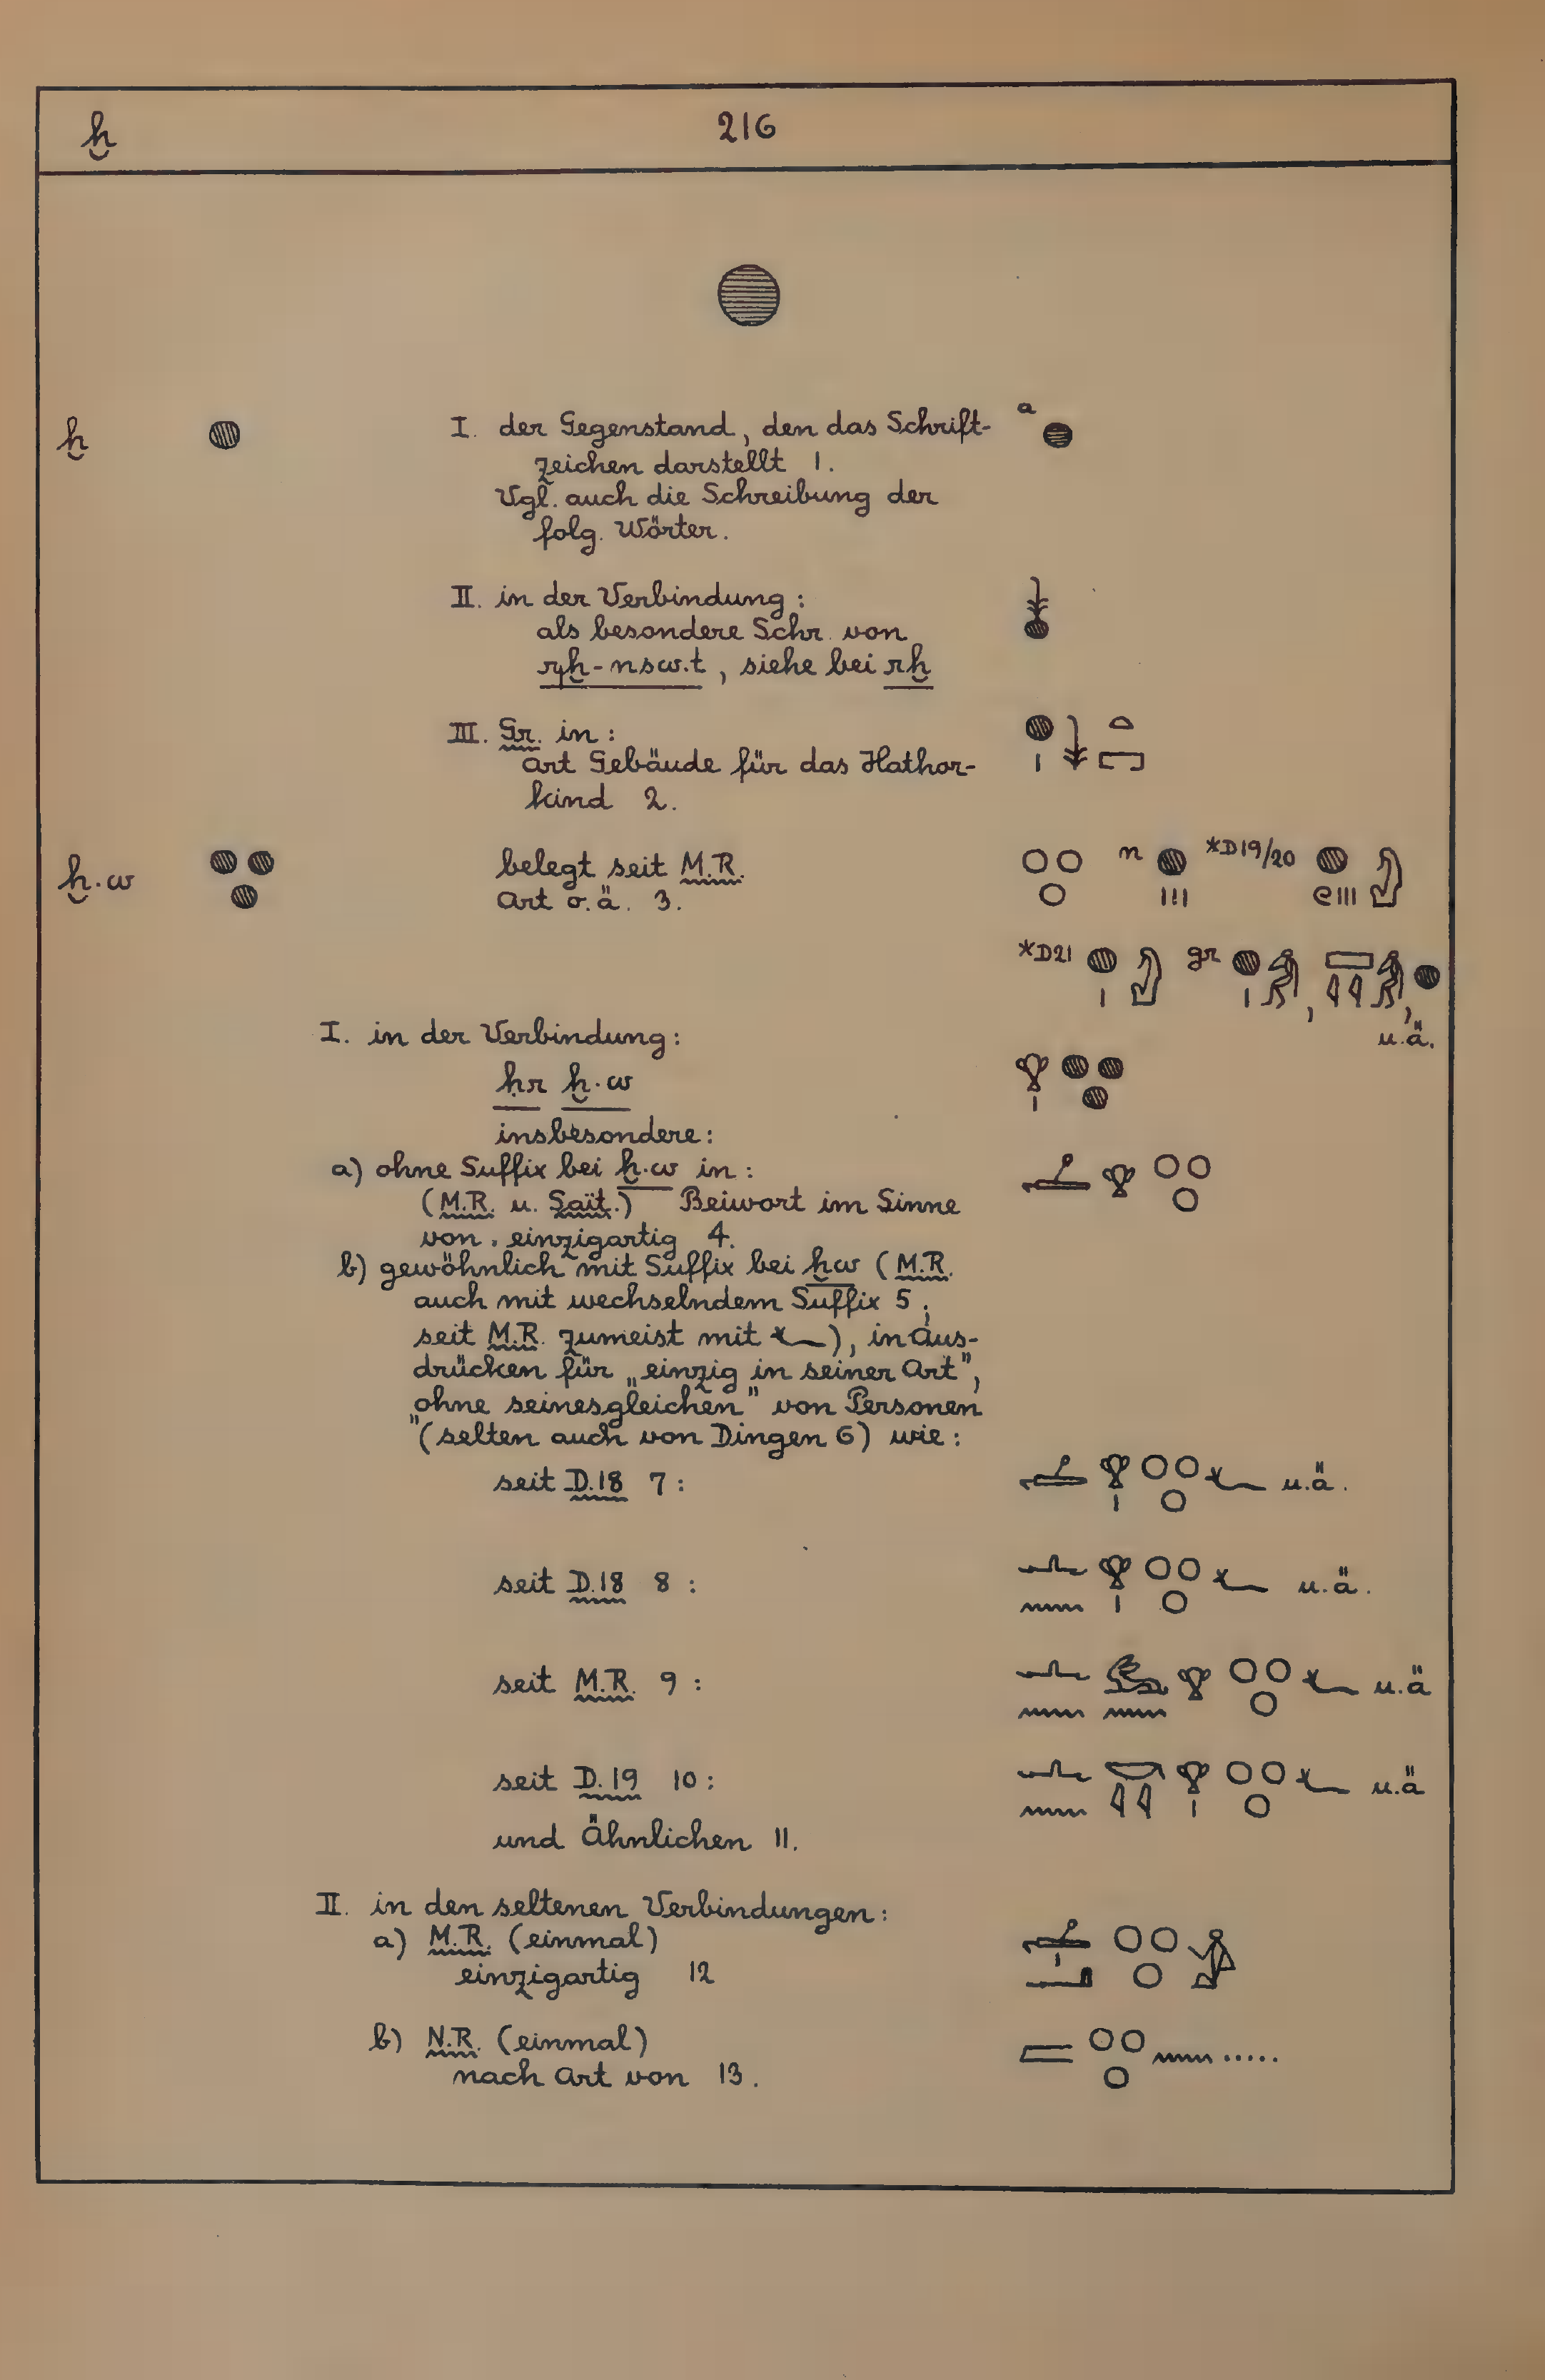 ḫ 216
𓐍
ḫ 𓐍 I. der Gegenstand, den das Schrift- a 𓐍
zeichen darstellt 1.
Vgl. auch die Schreibung der
folg. Wörter.
II. in der Verbindung: 𓇓𓐍
als besondere Schr. von
rḫ-nsw.t, siehe bei rḫ
III. Gr. in: 𓐍𓏤𓇓𓏏𓉐
Art Gebäude für das Hathor-
kind 2.
ḫ.w 𓐍𓐍𓐍 belegt seit M.R. n 𓐍𓏥 *D19/20 𓐍𓏲𓏥
Art o.ä. 3.
*D21 𓐍𓏤 gr 𓐍𓏤
u.ä.
I. in der Verbindung:
ḥr ḫ.w 𓁷𓏤𓐍𓐍𓐍
insbesondere:
a) ohne Suffix bei ḫ.w in:
(M.R. u. Saït.) Beiwort im Sinne
von einzigartig 4.
b) gewöhnlich mit Suffix bei ḫw (M.R.
auch mit wechselndem Suffix 5;
seit M.R. zumeist mit 𓆑), in Aus-
drücken für „einzig in seiner Art",
„ohne seinesgleichen" von Personen
(selten auch von Dingen 6) wie:
seit D.18 7: u.ä.
seit D.18 8: u.ä.
seit M.R. 9: u.ä
seit D.19 10: u.ä
und Ähnlichen 11.
II. in den seltenen Verbindungen:
a) M.R. (einmal)
einzigartig 12
b) N.R. (einmal)
nach Art von 13.